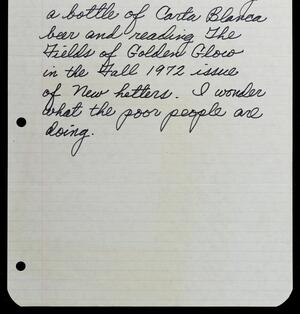 a bottle of Carta Blanca
beer and reading The
Fields of Golden Glow
in the Fall 1972 issue
of New Letters. I wonder
what the poor people are
doing.